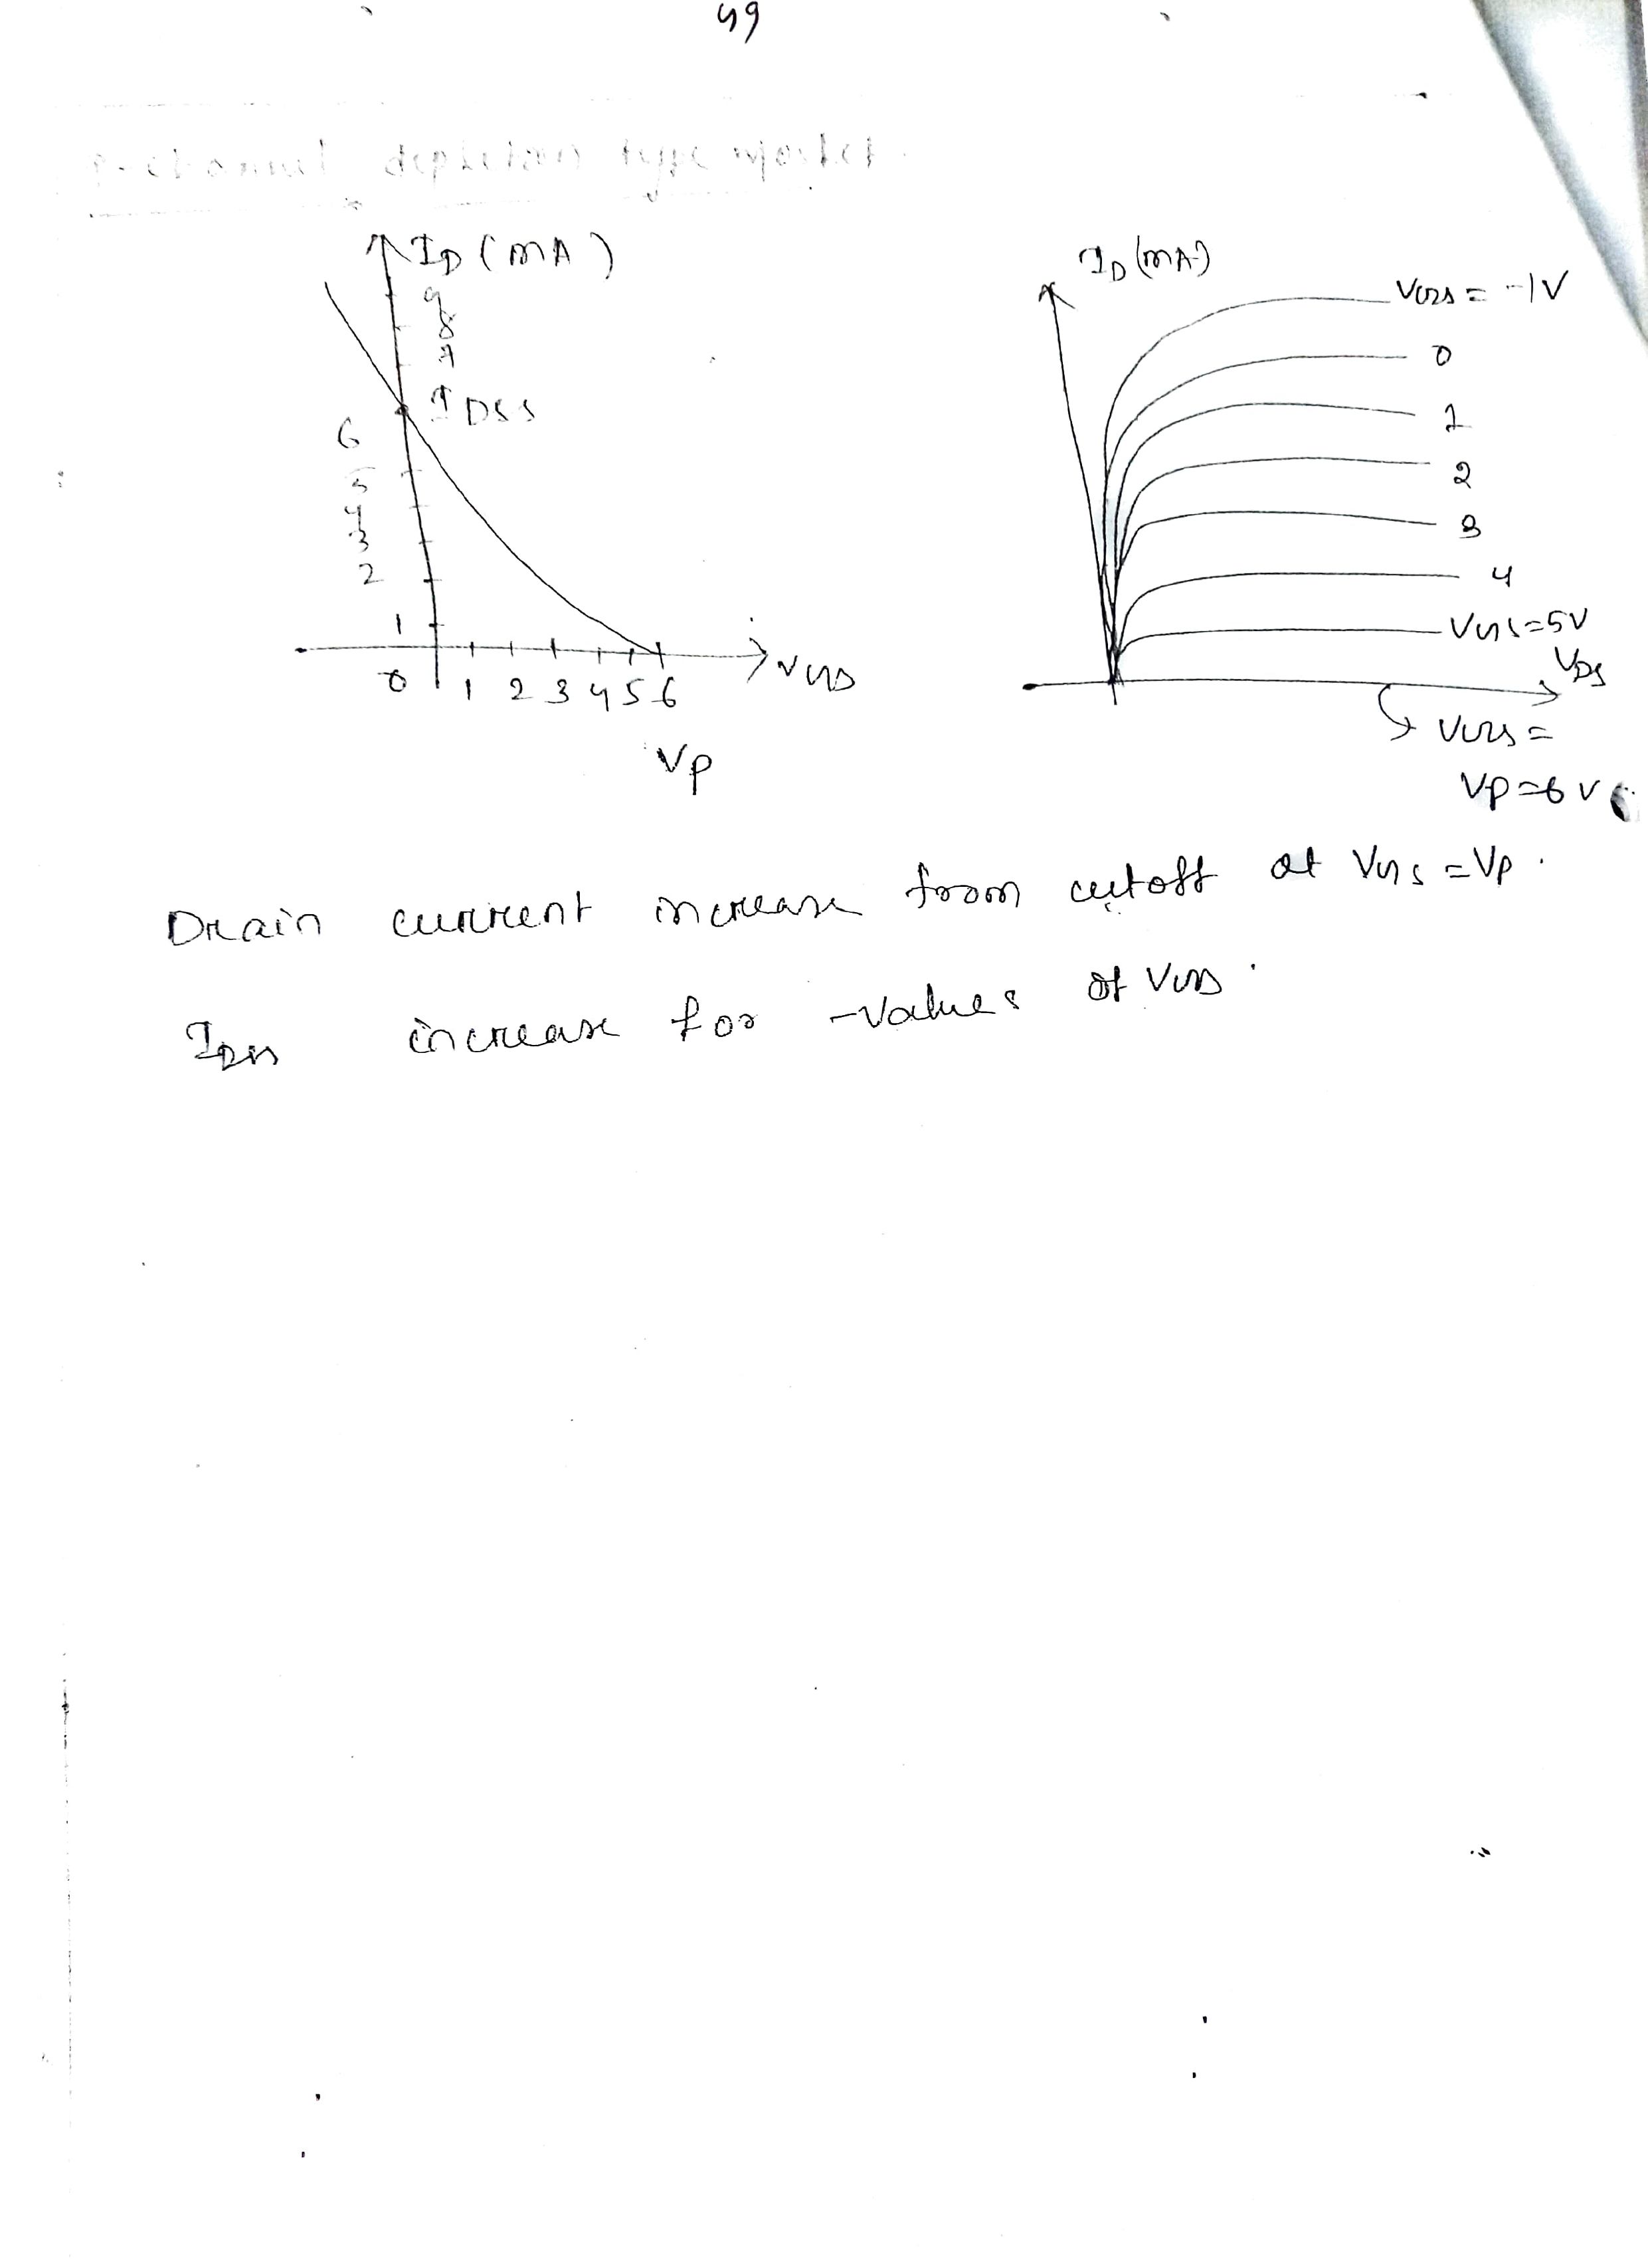 49
P-channel depletion type Mosfet.
ID (mA)
9
8
7
IDSS
6
5
4
3
2
1
0 1 2 3 4 5 6
VGS
Vp
ID (mA)
VGS = -1V
0
1
2
3
4
VGS=5V
VDS
VGS =
Vp=6V
Drain current increase from cutoff at VGS = Vp.
increase for -values of VGS.